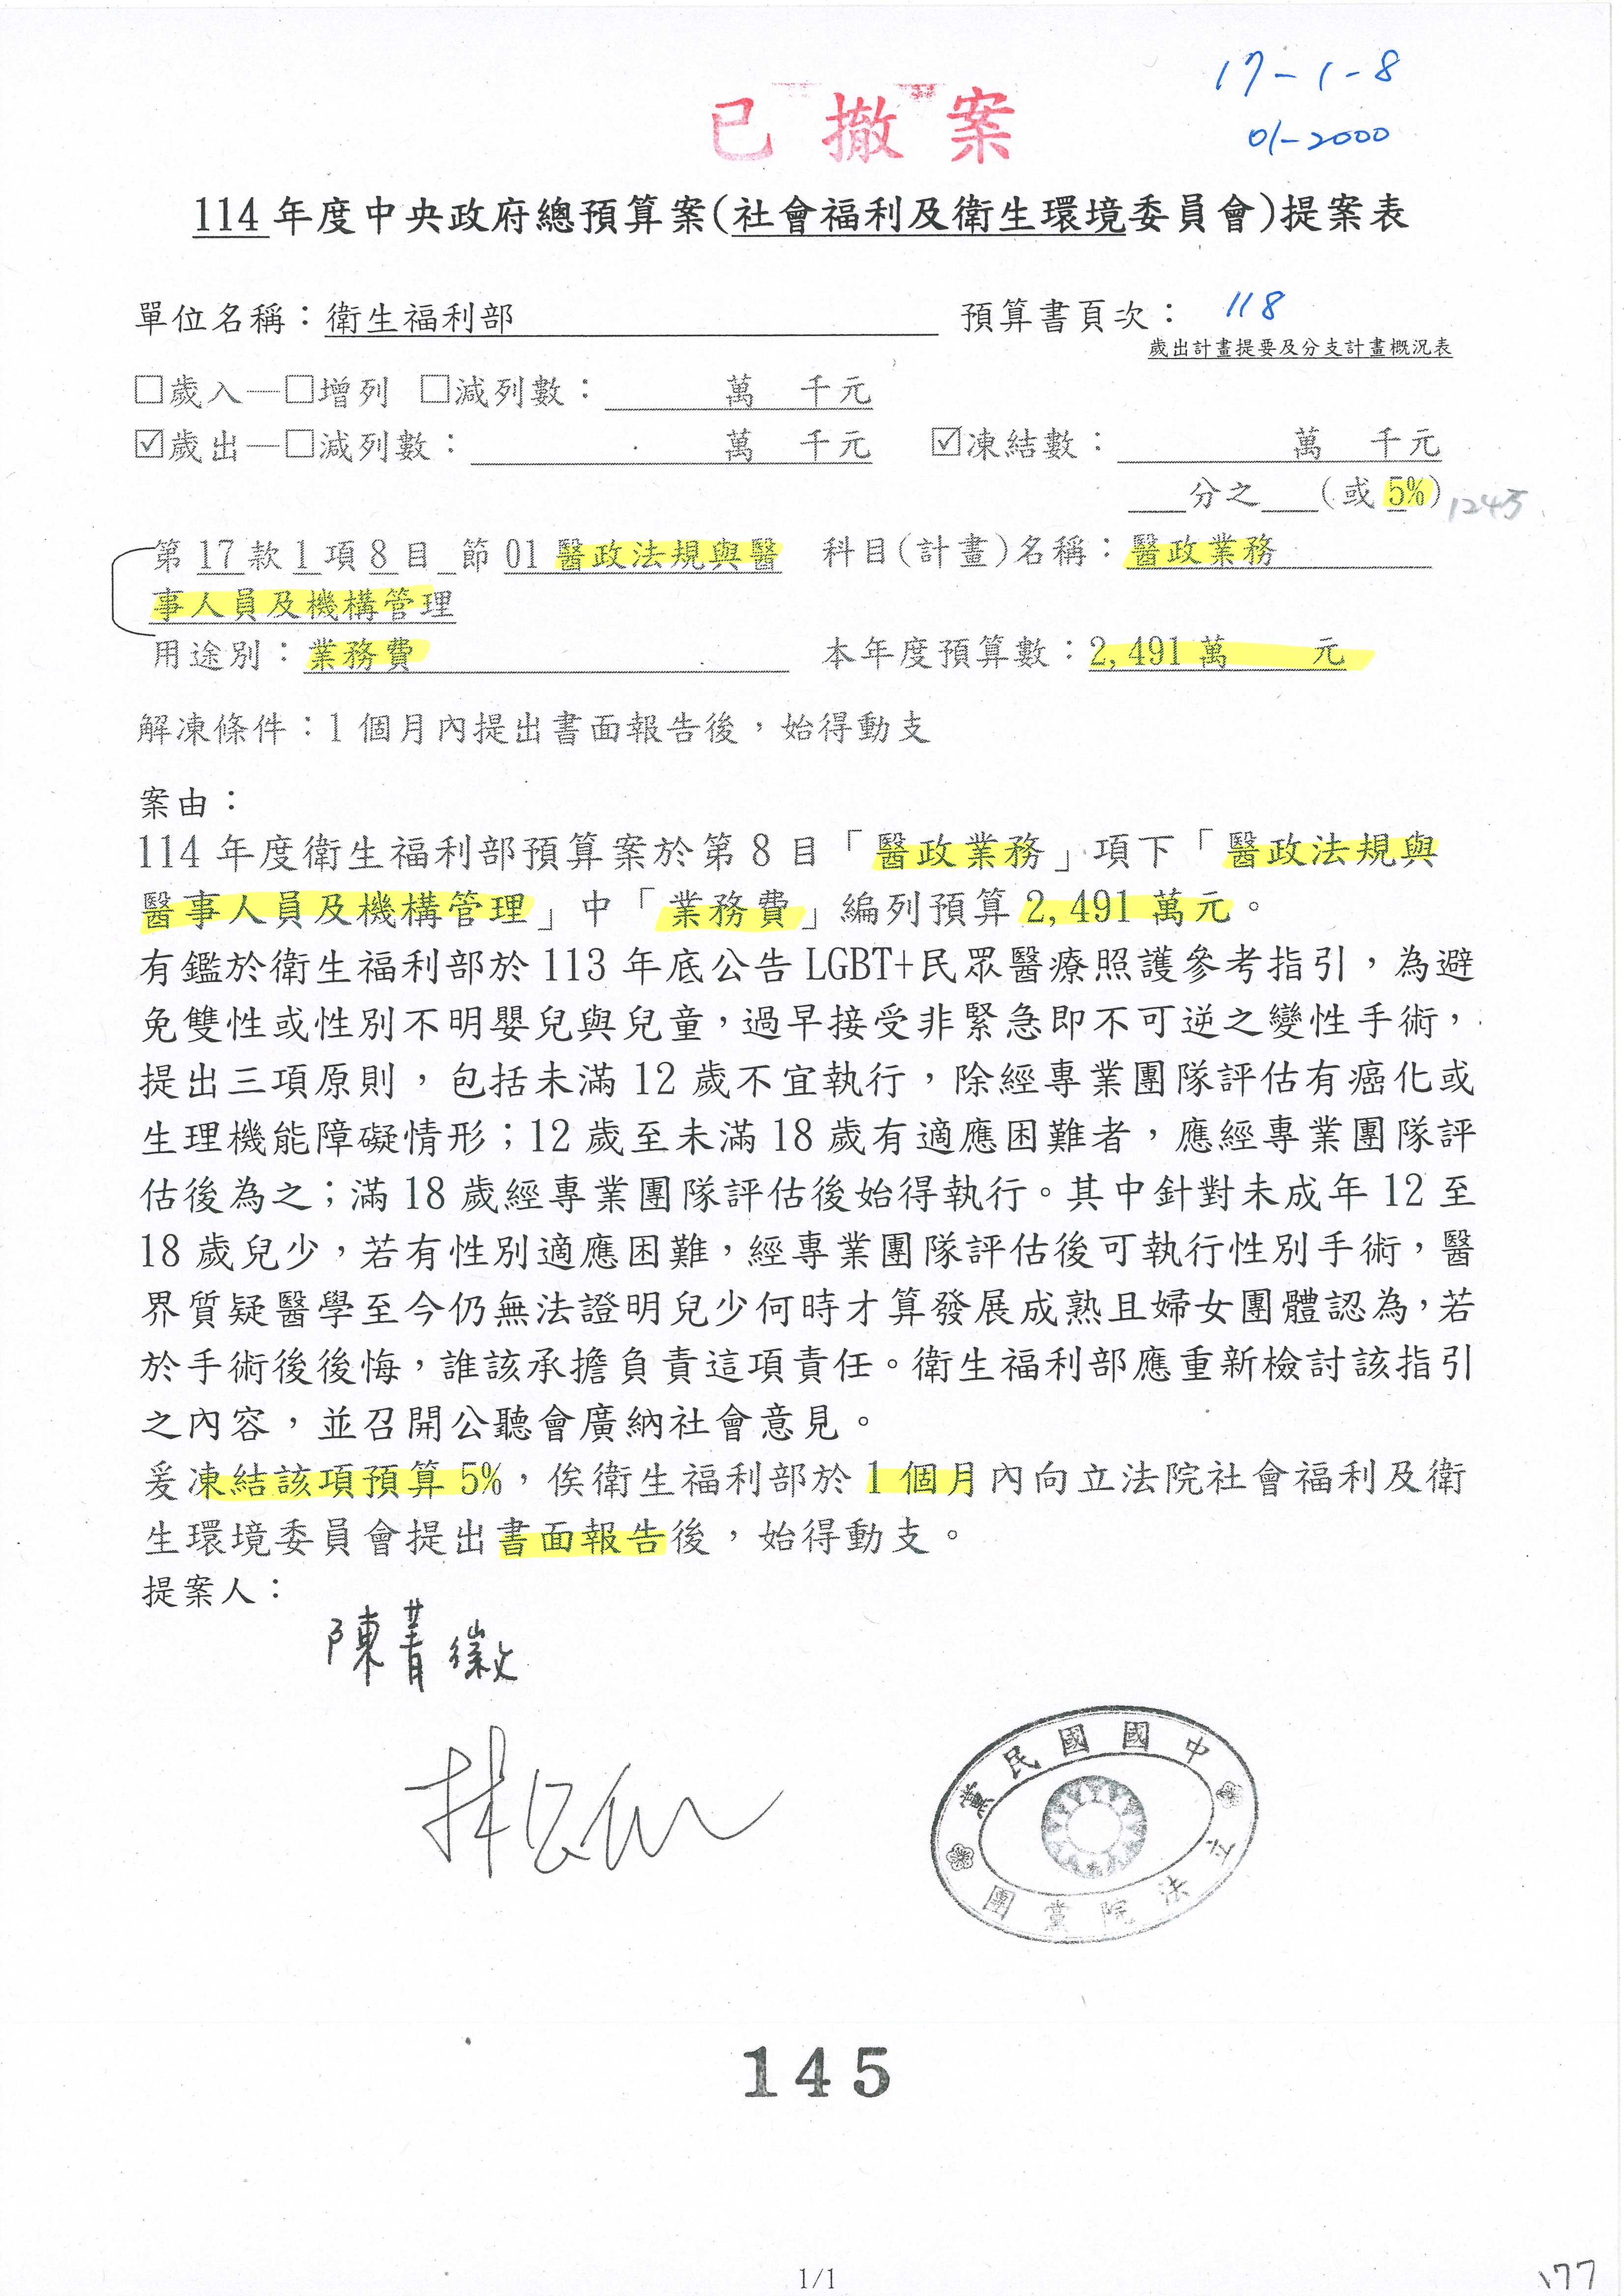 17-1-8
已撤案
01-2000
114年度中央政府總預算案(社會福利及衛生環境委員會)提案表
單位名稱：衛生福利部 預算書頁次： 118
歲出計畫提要及分支計畫概況表
□歲入—□增列 □減列數： 萬 千元
☑歲出—□減列數： 萬 千元 ☑凍結數： 萬 千元
分之 (或 5%) 124萬
第 17 款 1 項 8 目 節 01 醫政法規與醫 科目(計畫)名稱：醫政業務
事人員及機構管理
用途別：業務費 本年度預算數：2,491 萬 元
解凍條件：1 個月內提出書面報告後，始得動支
案由：
114 年度衛生福利部預算案於第 8 目「醫政業務」項下「醫政法規與
醫事人員及機構管理」中「業務費」編列預算 2,491 萬元。
有鑑於衛生福利部於 113 年底公告 LGBT+民眾醫療照護參考指引，為避
免雙性或性別不明嬰兒與兒童，過早接受非緊急即不可逆之變性手術，
提出三項原則，包括未滿 12 歲不宜執行，除經專業團隊評估有癌化或
生理機能障礙情形；12 歲至未滿 18 歲有適應困難者，應經專業團隊評
估後為之；滿 18 歲經專業團隊評估後始得執行。其中針對未成年 12 至
18 歲兒少，若有性別適應困難，經專業團隊評估後可執行性別手術，醫
界質疑醫學至今仍無法證明兒少何時才算發展成熟且婦女團體認為，若
於手術後後悔，誰該承擔負責這項責任。衛生福利部應重新檢討該指引
之內容，並召開公聽會廣納社會意見。
爰凍結該項預算 5%，俟衛生福利部於 1 個月內向立法院社會福利及衛
生環境委員會提出書面報告後，始得動支。
提案人：
陳菁徽
中國國民黨
立法院黨團
145
1/1
177